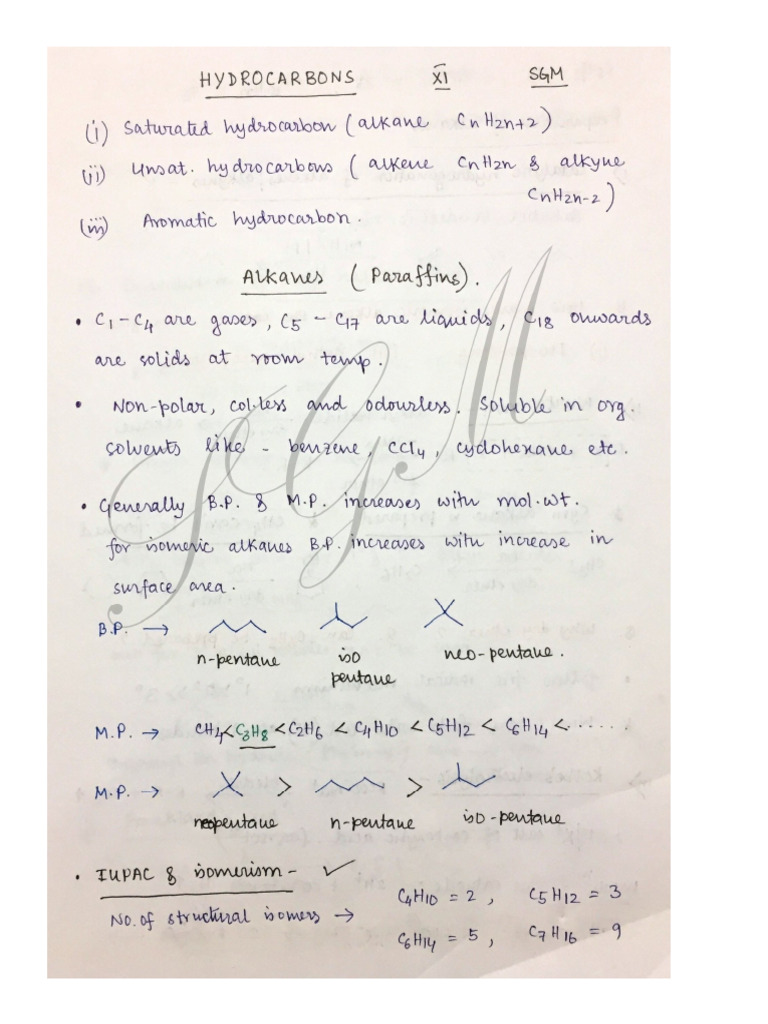 HYDROCARBONS XI SGM
(i) Saturated hydrocarbon (alkane CnH2n+2)
(ii) Unsat. hydrocarbons (alkene CnH2n & alkyne
CnH2n-2)
(iii) Aromatic hydrocarbon.
Alkanes (Paraffins).
• C1-C4 are gases, C5 - C17 are liquids, C18 onwards
are solids at room temp.
• Non-polar, col.less and odourless. Soluble in org.
solvents like - benzene, CCl4, cyclohexane etc.
• Generally B.P. & M.P. increases with mol.wt.
for isomeric alkanes B.P. increases with increase in
surface area.
B.P. →
n-pentane iso neo-pentane.
pentane
M.P. → CH4<C3H8<C2H6 < C4H10 < C5H12 < C6H14 <......
M.P. → > >
neopentane n-pentane iso-pentane
• IUPAC & isomerism- ✓
No. of structural isomers → C4H10 = 2, C5H12 = 3
C6H14 = 5, C7H16 = 9
SGM